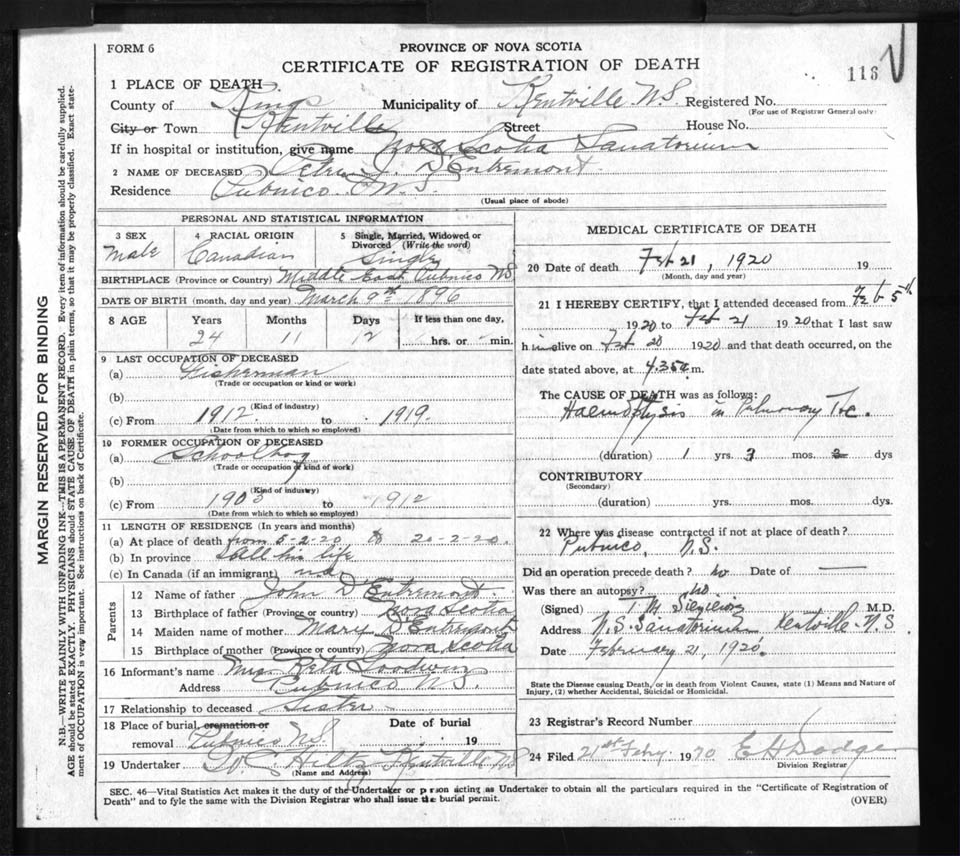 FORM 6
PROVINCE OF NOVA SCOTIA
CERTIFICATE OF REGISTRATION OF DEATH
116
1 PLACE OF DEATH
County of Kings Municipality of Kentville N.S. Registered No.
(For use of Registrar General only)
City or Town Kentville Street House No.
If in hospital or institution, give name Nova Scotia Sanatorium
2 NAME OF DECEASED D'Entremont
Residence Pubnico N.S.
(Usual place of abode)
PERSONAL AND STATISTICAL INFORMATION
3 SEX Male
4 RACIAL ORIGIN Canadian
5 Single, Married, Widowed or Divorced (Write the word) Single
BIRTHPLACE (Province or Country) Middle East Pubnico NS
DATE OF BIRTH (month, day and year) March 9th 1896
8 AGE Years Months Days If less than one day,
24 11 12 hrs. or min.
9 LAST OCCUPATION OF DECEASED
(a) Fisherman
(Trade or occupation or kind or work)
(b)
(Kind of industry)
(c) From 1912 to 1919
(Date from which to which so employed)
10 FORMER OCCUPATION OF DECEASED
(a) Schoolboy
(Trade or occupation or kind of work)
(b)
(Kind of industry)
(c) From 1903 to 1912
(Date from which to which so employed)
11 LENGTH OF RESIDENCE (In years and months)
(a) At place of death from 5-2-20 to 20-2-20.
(b) In province all his life
(c) In Canada (if an immigrant) no
Parents
12 Name of father John D'Entremont
13 Birthplace of father (Province or country) Nova Scotia
14 Maiden name of mother Mary D'Entremont
15 Birthplace of mother (Province or country) Nova Scotia
16 Informant's name Reta Goodwin
Address Pubnico N.S.
17 Relationship to deceased Sister
18 Place of burial, cremation or removal Pubnico NS Date of burial 19
19 Undertaker Hiltz Kentville NS
(Name and Address)
MEDICAL CERTIFICATE OF DEATH
20 Date of death Feb 21, 1920 19
(Month, day and year)
21 I HEREBY CERTIFY, that I attended deceased from Feb 5th
1920 to Feb 21 1920 that I last saw
him alive on Feb 20 1920 and that death occurred, on the
date stated above, at 4.35 a.m.
The CAUSE OF DEATH was as follows:
Haemoptysis in Pulmonary Tbc.
(duration) 1 yrs. 3 mos. dys
CONTRIBUTORY
(Secondary)
(duration) yrs. mos. dys.
22 Where was disease contracted if not at place of death?
Pubnico, N.S.
Did an operation precede death? no Date of —
Was there an autopsy? no
(Signed) T M M.D.
Address N.S. Sanatorium Kentville N.S
Date February 21, 1920.
State the Disease causing Death, or in death from Violent Causes, state (1) Means and Nature of
Injury, (2) whether Accidental, Suicidal or Homicidal.
23 Registrar's Record Number
24 Filed 21st Feby 1920 E H Dodge
Division Registrar
SEC. 46—Vital Statistics Act makes it the duty of the Undertaker or person acting as Undertaker to obtain all the particulars required in the "Certificate of Registration of
Death" and to fyle the same with the Division Registrar who shall issue the burial permit.
(OVER)
MARGIN RESERVED FOR BINDING
N.B.—WRITE PLAINLY WITH UNFADING INK—THIS IS A PERMANENT RECORD. Every item of information should be carefully supplied.
AGE should be stated EXACTLY. PHYSICIANS should STATE CAUSE OF DEATH in plain terms, so that it may be properly classified. Exact state-
ment of OCCUPATION is very important. See instructions on back of Certificate.